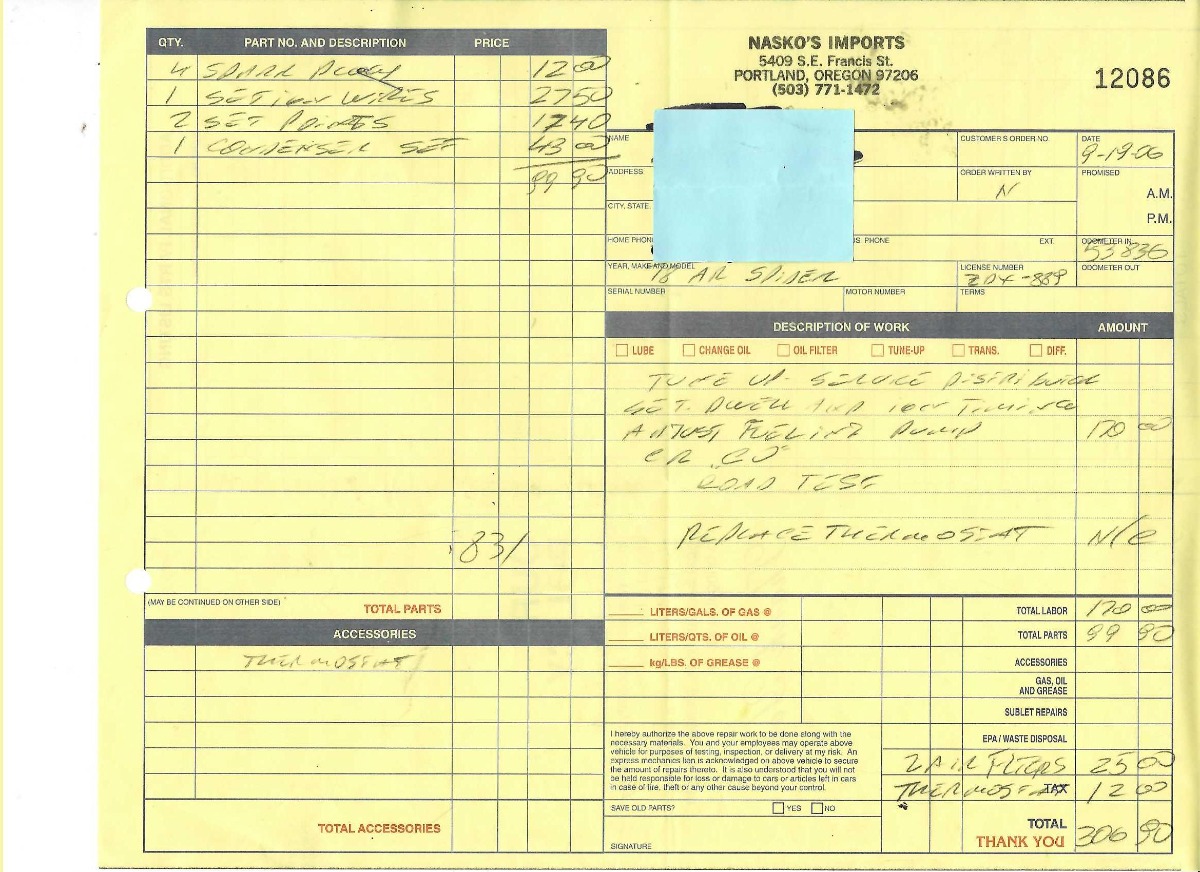 QTY. PART NO. AND DESCRIPTION PRICE
4 SPARK PLUGS 12 00
1 SET IGN WIRES 27 50
2 SET POINTS 17 40
1 CONDENSER SET 43 00
99 90
831
(MAY BE CONTINUED ON OTHER SIDE) TOTAL PARTS
ACCESSORIES
THERMOSTAT
TOTAL ACCESSORIES
NASKO'S IMPORTS
5409 S.E. Francis St.
PORTLAND, OREGON 97206
(503) 771-1472
12086
NAME CUSTOMER'S ORDER NO. DATE
9-19-06
ADDRESS ORDER WRITTEN BY PROMISED
N A.M.
CITY, STATE, P.M.
HOME PHONE PHONE EXT. ODOMETER IN
53836
YEAR, MAKE AND MODEL LICENSE NUMBER ODOMETER OUT
78 AR SPIDER ZDX-889
SERIAL NUMBER MOTOR NUMBER TERMS
DESCRIPTION OF WORK AMOUNT
LUBE CHANGE OIL OIL FILTER TUNE-UP TRANS. DIFF.
TUNE UP - SERVICE DISTRIBUTOR
SET DWELL AND IGN TIMING
ADJUST FUEL INJ PUMP 170 00
"CO"
ROAD TEST
REPLACE THERMOSTAT N/C
LITERS/GALS. OF GAS @ TOTAL LABOR 170 00
LITERS/QTS. OF OIL @ TOTAL PARTS 99 90
kg/LBS. OF GREASE @ ACCESSORIES
GAS, OIL
AND GREASE
SUBLET REPAIRS
I hereby authorize the above repair work to be done along with the
necessary materials. You and your employees may operate above
vehicle for purposes of testing, inspection, or delivery at my risk. An
express mechanics lien is acknowledged on above vehicle to secure
the amount of repairs thereto. It is also understood that you will not
be held responsible for loss or damage to cars or articles left in cars
in case of fire, theft or any other cause beyond your control.
EPA / WASTE DISPOSAL
2 AIR FLTERS 25 00
THERMOSTAT TAX 12 00
SAVE OLD PARTS? YES NO
TOTAL
THANK YOU 306 90
SIGNATURE